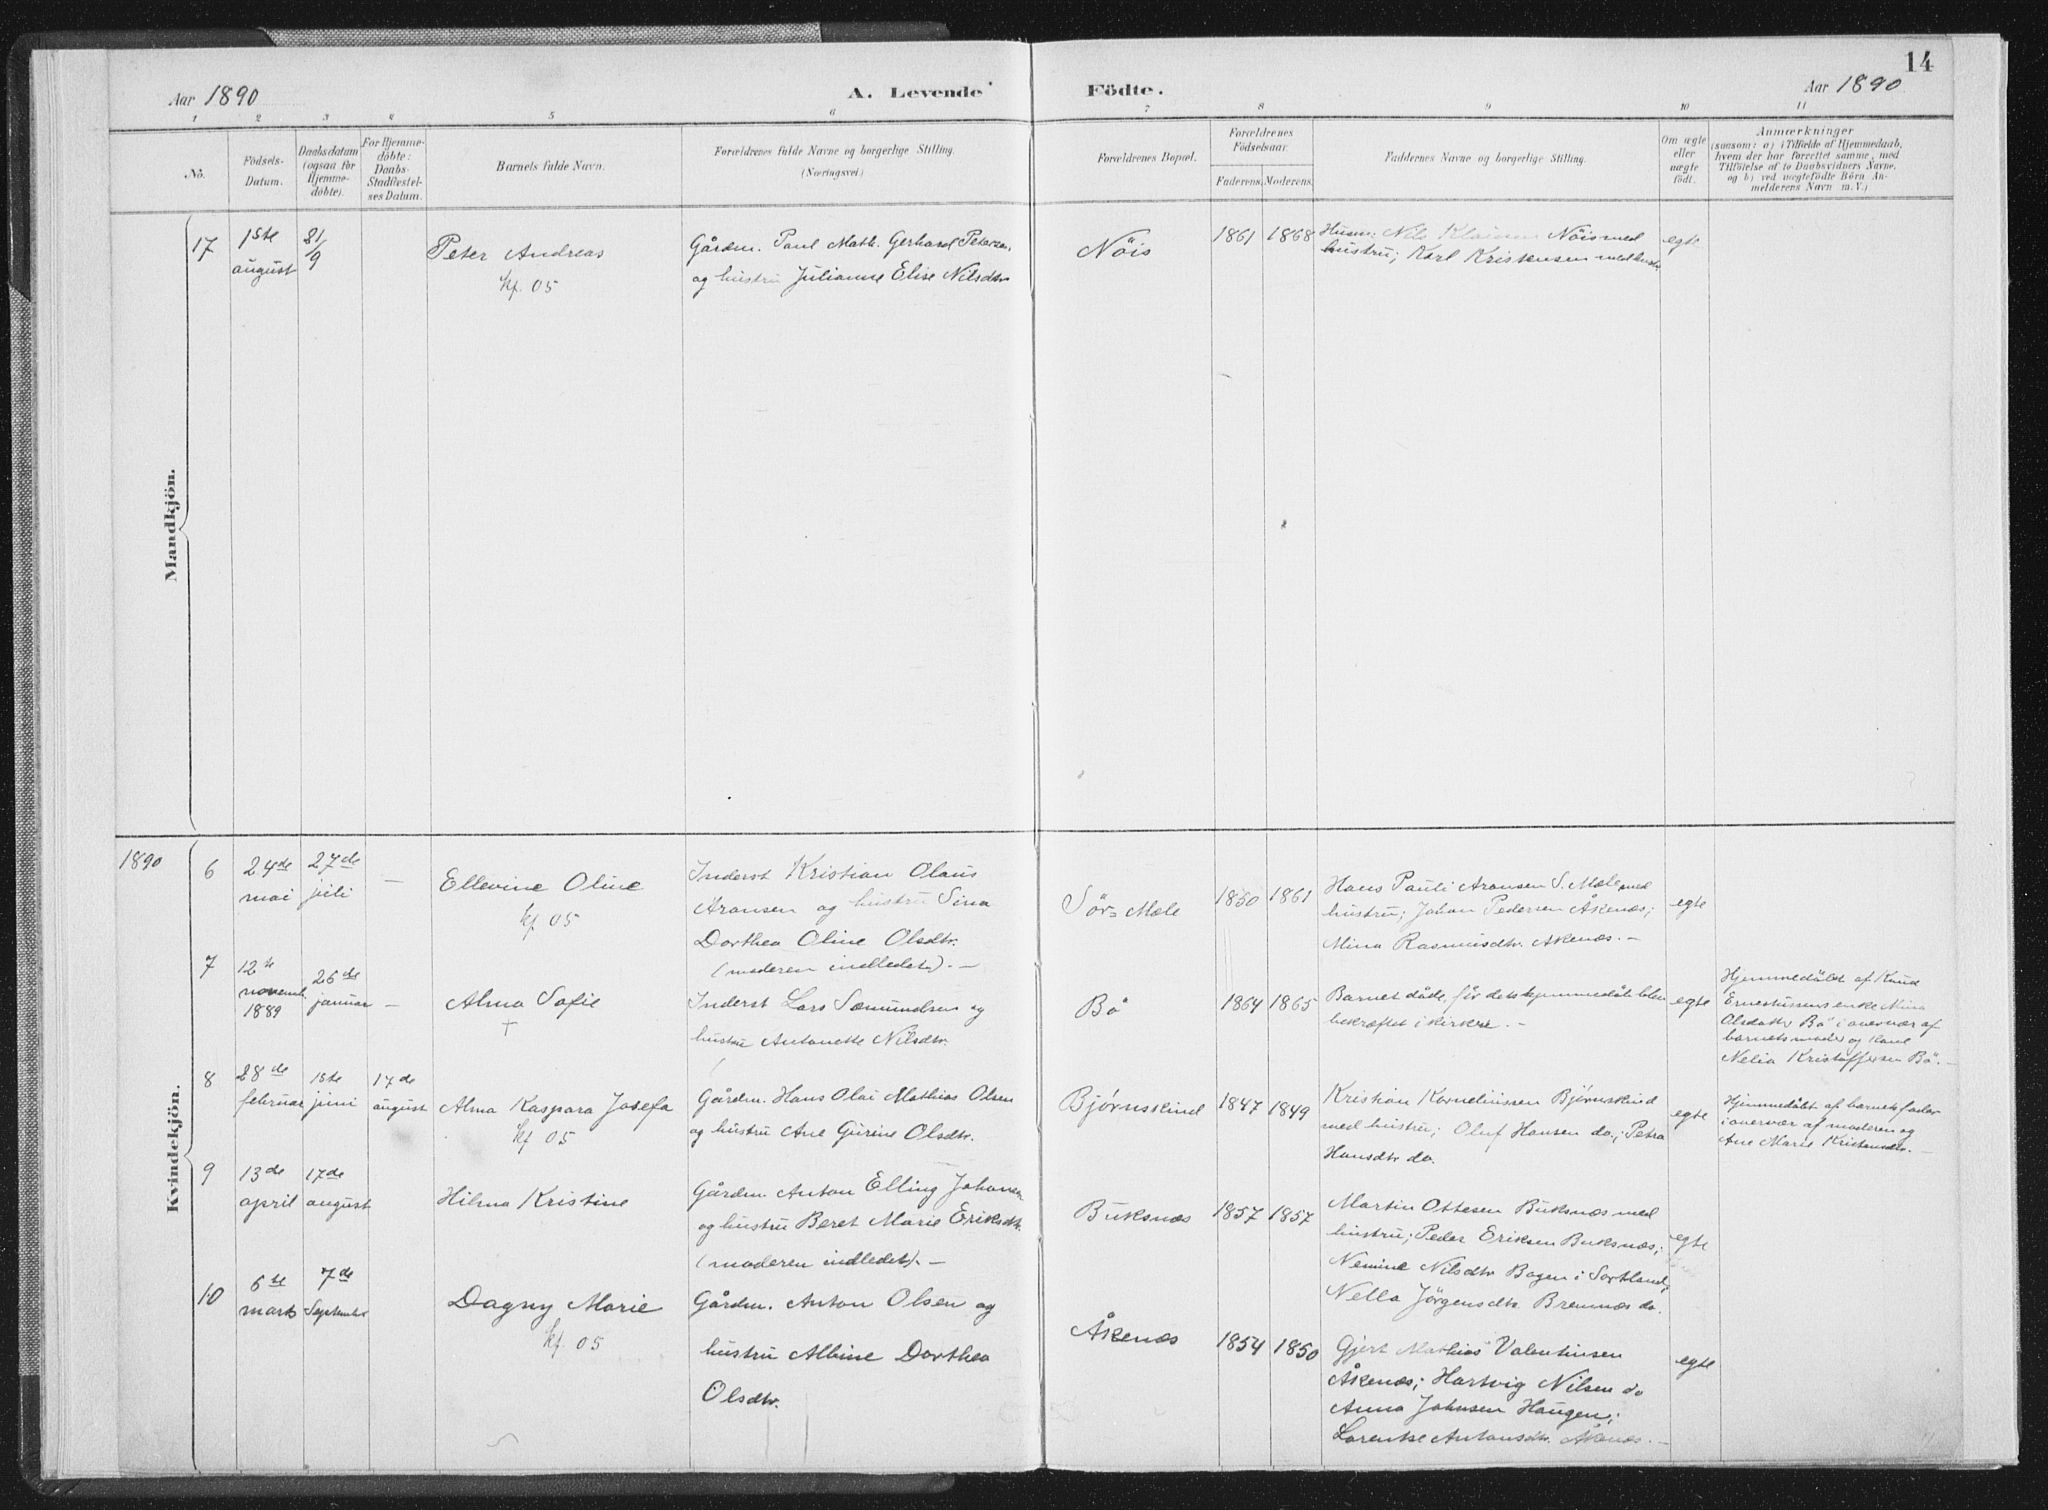 14
Aar 1890
A. Levende
Födte.
Aar 1890
1 2 3 4 5 6 7 8 9 10 11
No.
Födsels-Datum.
Daabsdatum (ogsaa for Hjemmedöbte).
For Hjemmedöbte: Daabs-Stadfestelses Datum.
Barnets fulde Navn.
Forældrenes fulde Navne og borgerlige Stilling. (Næringsvei)
Forældrenes Bopæl.
Forældrenes Födselsaar.
Faderens. Moderens.
Faddernes Navne og borgerlige Stilling.
Om ægte eller uægte födt.
Anmærkninger
(saasom: a) i Tilfælde af Hjemmedaab,
hvem der har forrettet samme, med
Tilföielse af to Daabsvidners Navne,
og b) ved uægtefödte Börn An-
melderens Navn m. V.)
Mandkjön.
17
1ste august
21/9
Peter Andreas
kf. 05
Gårdm. Paul Math. Gerhard Petersen
og hustru Julianne Elise Nilsdtr
Nöis
1861 1868
Husm. Nils Klausen Nöis med
hustru; Karl Kristensen med hustr
egte
Kvindekjön.
1890
6
24de mai
27de juli
—
Ellevine Oline
kf. 05
Inderst Kristian Olaus
Aronsen og hustru Sina
Dorthea Oline Olsdtr.
(moderen indledet). —
Sör-Mæle
1850 1861
Hans Pauli Aronsen S. Mæle med
hustru; Johan Pedersen Åkenæs;
Mina Rasmusdtr. Åkenæs. —
egte
7
12te novemb. 1889
26de januar
—
Alma Sofie
†
Inderst Lars Sæmundsen og
hustru Antonette Nilsdtr.
Bö
1864 1865
Barnet döde, för dets hjemmedåb blev
bekræftet i kirken. —
egte
Hjemmedöbt af Knud
Ernestussens enke Mina
Olsdatter Bö i overvær af
barnets moder og
Nelia Kristoffersen Bö. —
8
28de februar
1ste juni
17de august
Alma Kaspara Josefa
kf 05
Gårdm. Hans Olai Mathias Olsen
og hustru Ane Gurine Olsdtr.
Bjørnskind
1847 1849
Kristian Korneliussen Bjørnskind
med hustru; Oluf Hansen do.; Petra
Hansdtr do.
egte
Hjemmedöbt af barnets fader
i overvær af moderen og
Ane Marie Kristensdtr. —
9
13de april
17de august
Hilma Kristine
Gårdm. Anton Elling Johansen
og hustru Beret Marie Eriksdtr.
(moderen indledet). —
Buksnæs
1857 1857
Martin Ottesen Buksnæs med
hustru; Peder Eriksen Buksnæs;
Nemine Nilsdtr Bogen i Sortland;
Nella Jörgensdtr Bremnæs do.
egte
10
6te marts
7de September
Dagny Marie
kf. 05
Gårdm. Anton Olsen og
hustru Albine Dorthea
Olsdtr.
Åkenæs
1854 1850
Gjert Mathias Valentinsen
Åkenæs; Hartvig Nilsen do
Anna Johnsen Haugen;
Lorentse Antonsdtr. Åkenæs. —
egte